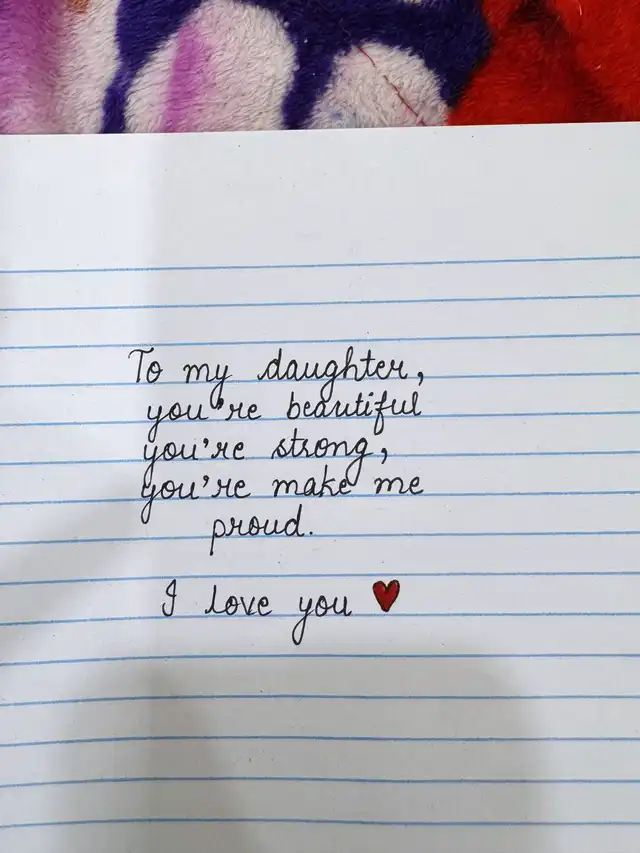 To my daughter,
you're beautiful
you're strong,
you're make me
proud.
I love you ❤